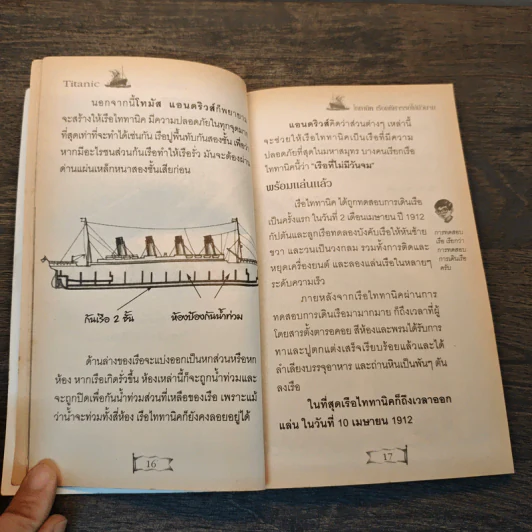 Titanic
นอกจากนี้โทมัส แอนดริวส์ก็พยายาม
จะสร้างให้เรือไททานิค มีความปลอดภัยในทุกจุดมาก
ที่สุดเท่าที่จะทำได้เช่นกัน เรือปูพื้นทับกันสองชั้น เพื่อว่า
หากมีอะไรชนส่วนก้นเรือทำให้เรือรั่ว มันจะต้องผ่าน
ด่านแผ่นเหล็กหนาสองชั้นเสียก่อน
ก้นเรือ 2 ชั้น
ห้องป้องกันน้ำท่วม
ด้านล่างของเรือจะแบ่งออกเป็นหกส่วนหรือหก
ห้อง หากเรือเกิดรั่วขึ้น ห้องเหล่านี้ก็จะถูกน้ำท่วมและ
จะถูกปิดเพื่อกันน้ำท่วมส่วนที่เหลือของเรือ เพราะแม้
ว่าน้ำจะท่วมทั้งสี่ห้อง เรือไททานิคก็ยังคงลอยอยู่ได้
16
แอนดริวส์คิดว่าส่วนต่างๆ เหล่านี้
จะช่วยให้เรือไททานิคเป็นเรือที่มีความ
ปลอดภัยที่สุดในมหาสมุทร บางคนเรียกเรือ
ไททานิคนี้ว่า "เรือที่ไม่มีวันจม"
พร้อมแล่นแล้ว
เรือไททานิค ได้ถูกทดสอบการเดินเรือ
เป็นครั้งแรก ในวันที่ 2 เดือนเมษายน ปี 1912
กัปตันและลูกเรือทดลองบังคับเรือให้หันซ้าย
ขวา และวนเป็นวงกลม รวมทั้งการติดและ
หยุดเครื่องยนต์ และลองแล่นเรือในหลายๆ
ระดับความเร็ว
การทดสอบ
เรือ เรียกว่า
การทดสอบ
การเดินเรือ
ครับ
ภายหลังจากเรือไททานิคผ่านการ
ทดสอบการเดินเรือมามากมาย ก็ถึงเวลาที่ผู้
โดยสารตั้งตารอคอย สีห้องและพรมได้รับการ
ทาและปูตกแต่งเสร็จเรียบร้อยแล้วและได้
ลำเลียงบรรจุอาหาร และถ่านหินเป็นพันๆ ตัน
ลงเรือ
ในที่สุดเรือไททานิคก็ถึงเวลาออก
แล่น ในวันที่ 10 เมษายน 1912
17